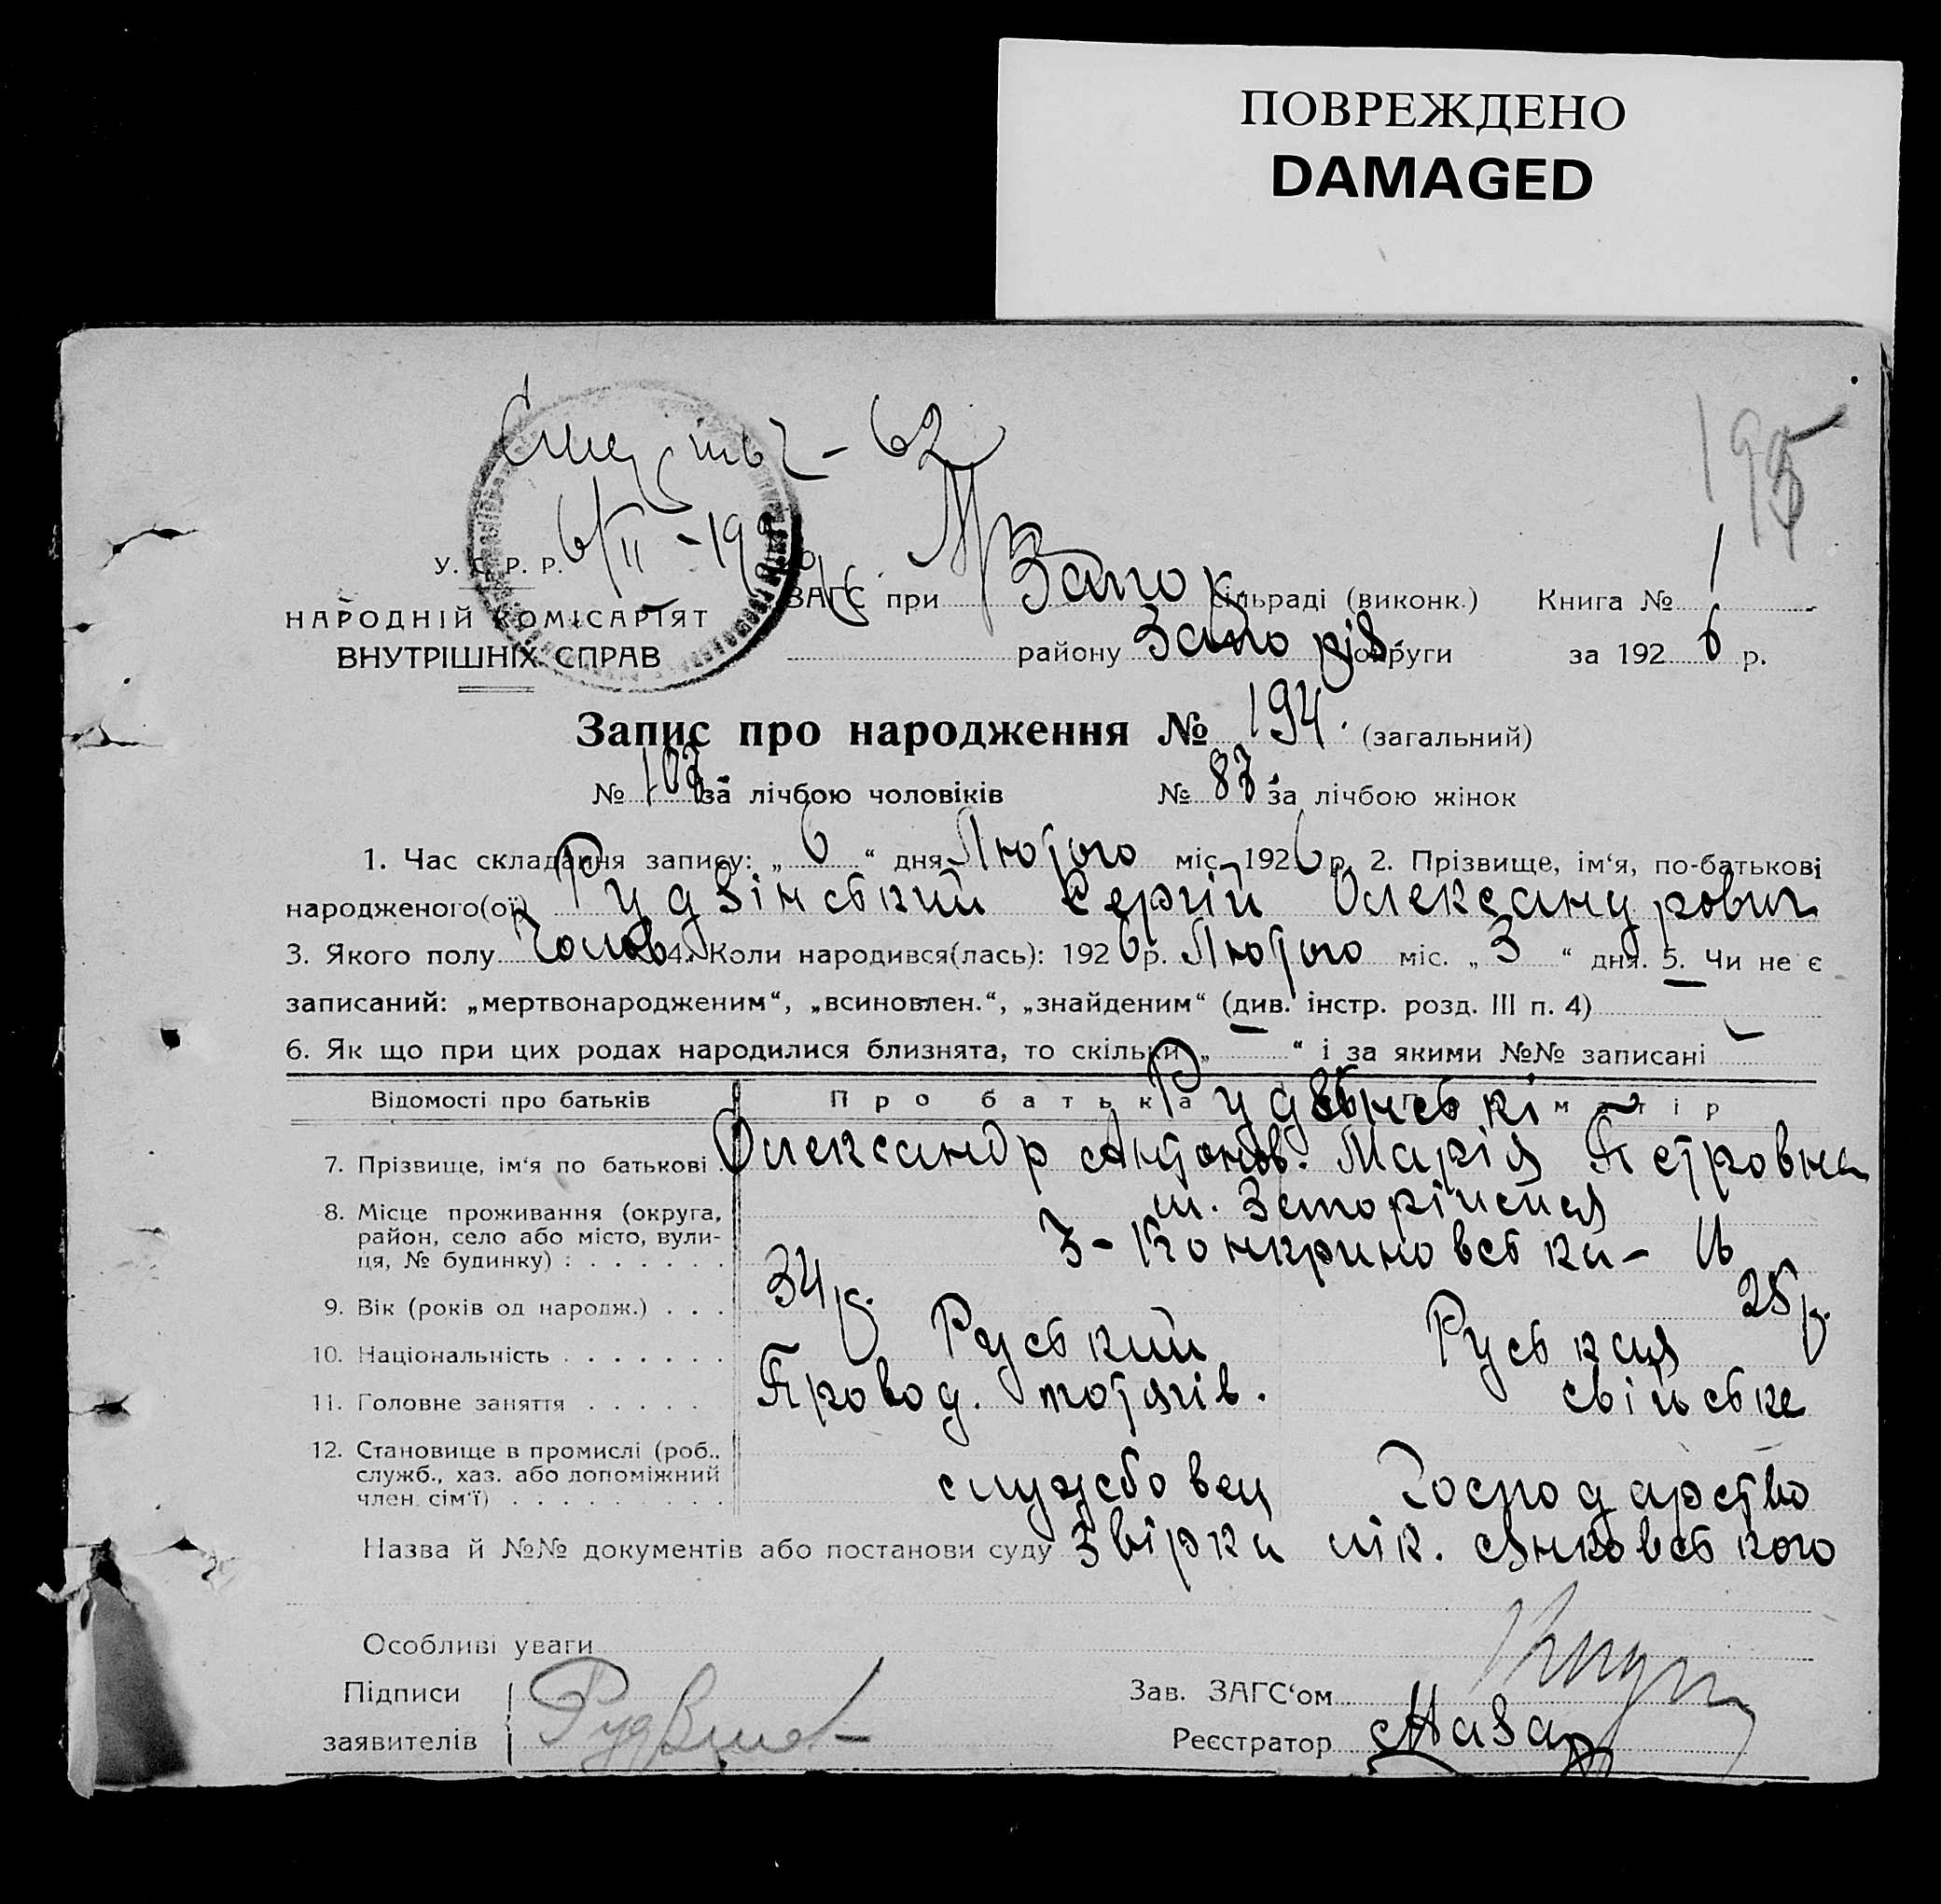 ПОВРЕЖДЕНО
DAMAGED
62
195
6/II - 192
У. С. Р. Р.
НАРОДНІЙ КОМІСАРІЯТ
ВНУТРІШНІХ СПРАВ
ЗАГС при Запо сільраді (виконк.) Книга № 1
району Запоріз округи за 1926 р.
Запис про народження № 194. (загальний)
№ 107 за лічбою чоловіків № 87 за лічбою жінок
1. Час складання запису: „6“ дня Лютого міс. 1926 р. 2. Прізвище, ім‘я, по-батькові
народженого(ої) Рудзінський Сергій Олександрович
3. Якого полу Чолов 4. Коли народився(лась): 1926 р. Лютого міс. „3“ дня. 5. Чи не є
записаний: „мертвонародженим“, „всиновлен.“, „знайденим“ (див. інстр. розд. III п. 4)
6. Як що при цих родах народилися близнята, то скільки „ “ і за якими №№ записані
Відомості про батьків Про батька матір
7. Прізвище, ім‘я по батькові Олександр Антонов. Марія Петровна
8. Місце проживання (округа,
район, село або місто, вули-
ця, № будинку) :
м. Запоріжжя
9. Вік (років од народж.) 34 р. 25 р.
10. Національність Руський Руськая
11. Головне заняття Провод. потягів. свійське
12. Становище в промислі (роб.,
служб., хаз. або допоміжний
член сім‘ї) службовец Господарство
Назва й №№ документів або постанови суду Звірка лік. Янковського
Особливі уваги
Підписи
заявителів
Зав. ЗАГС‘ом
Реєстратор